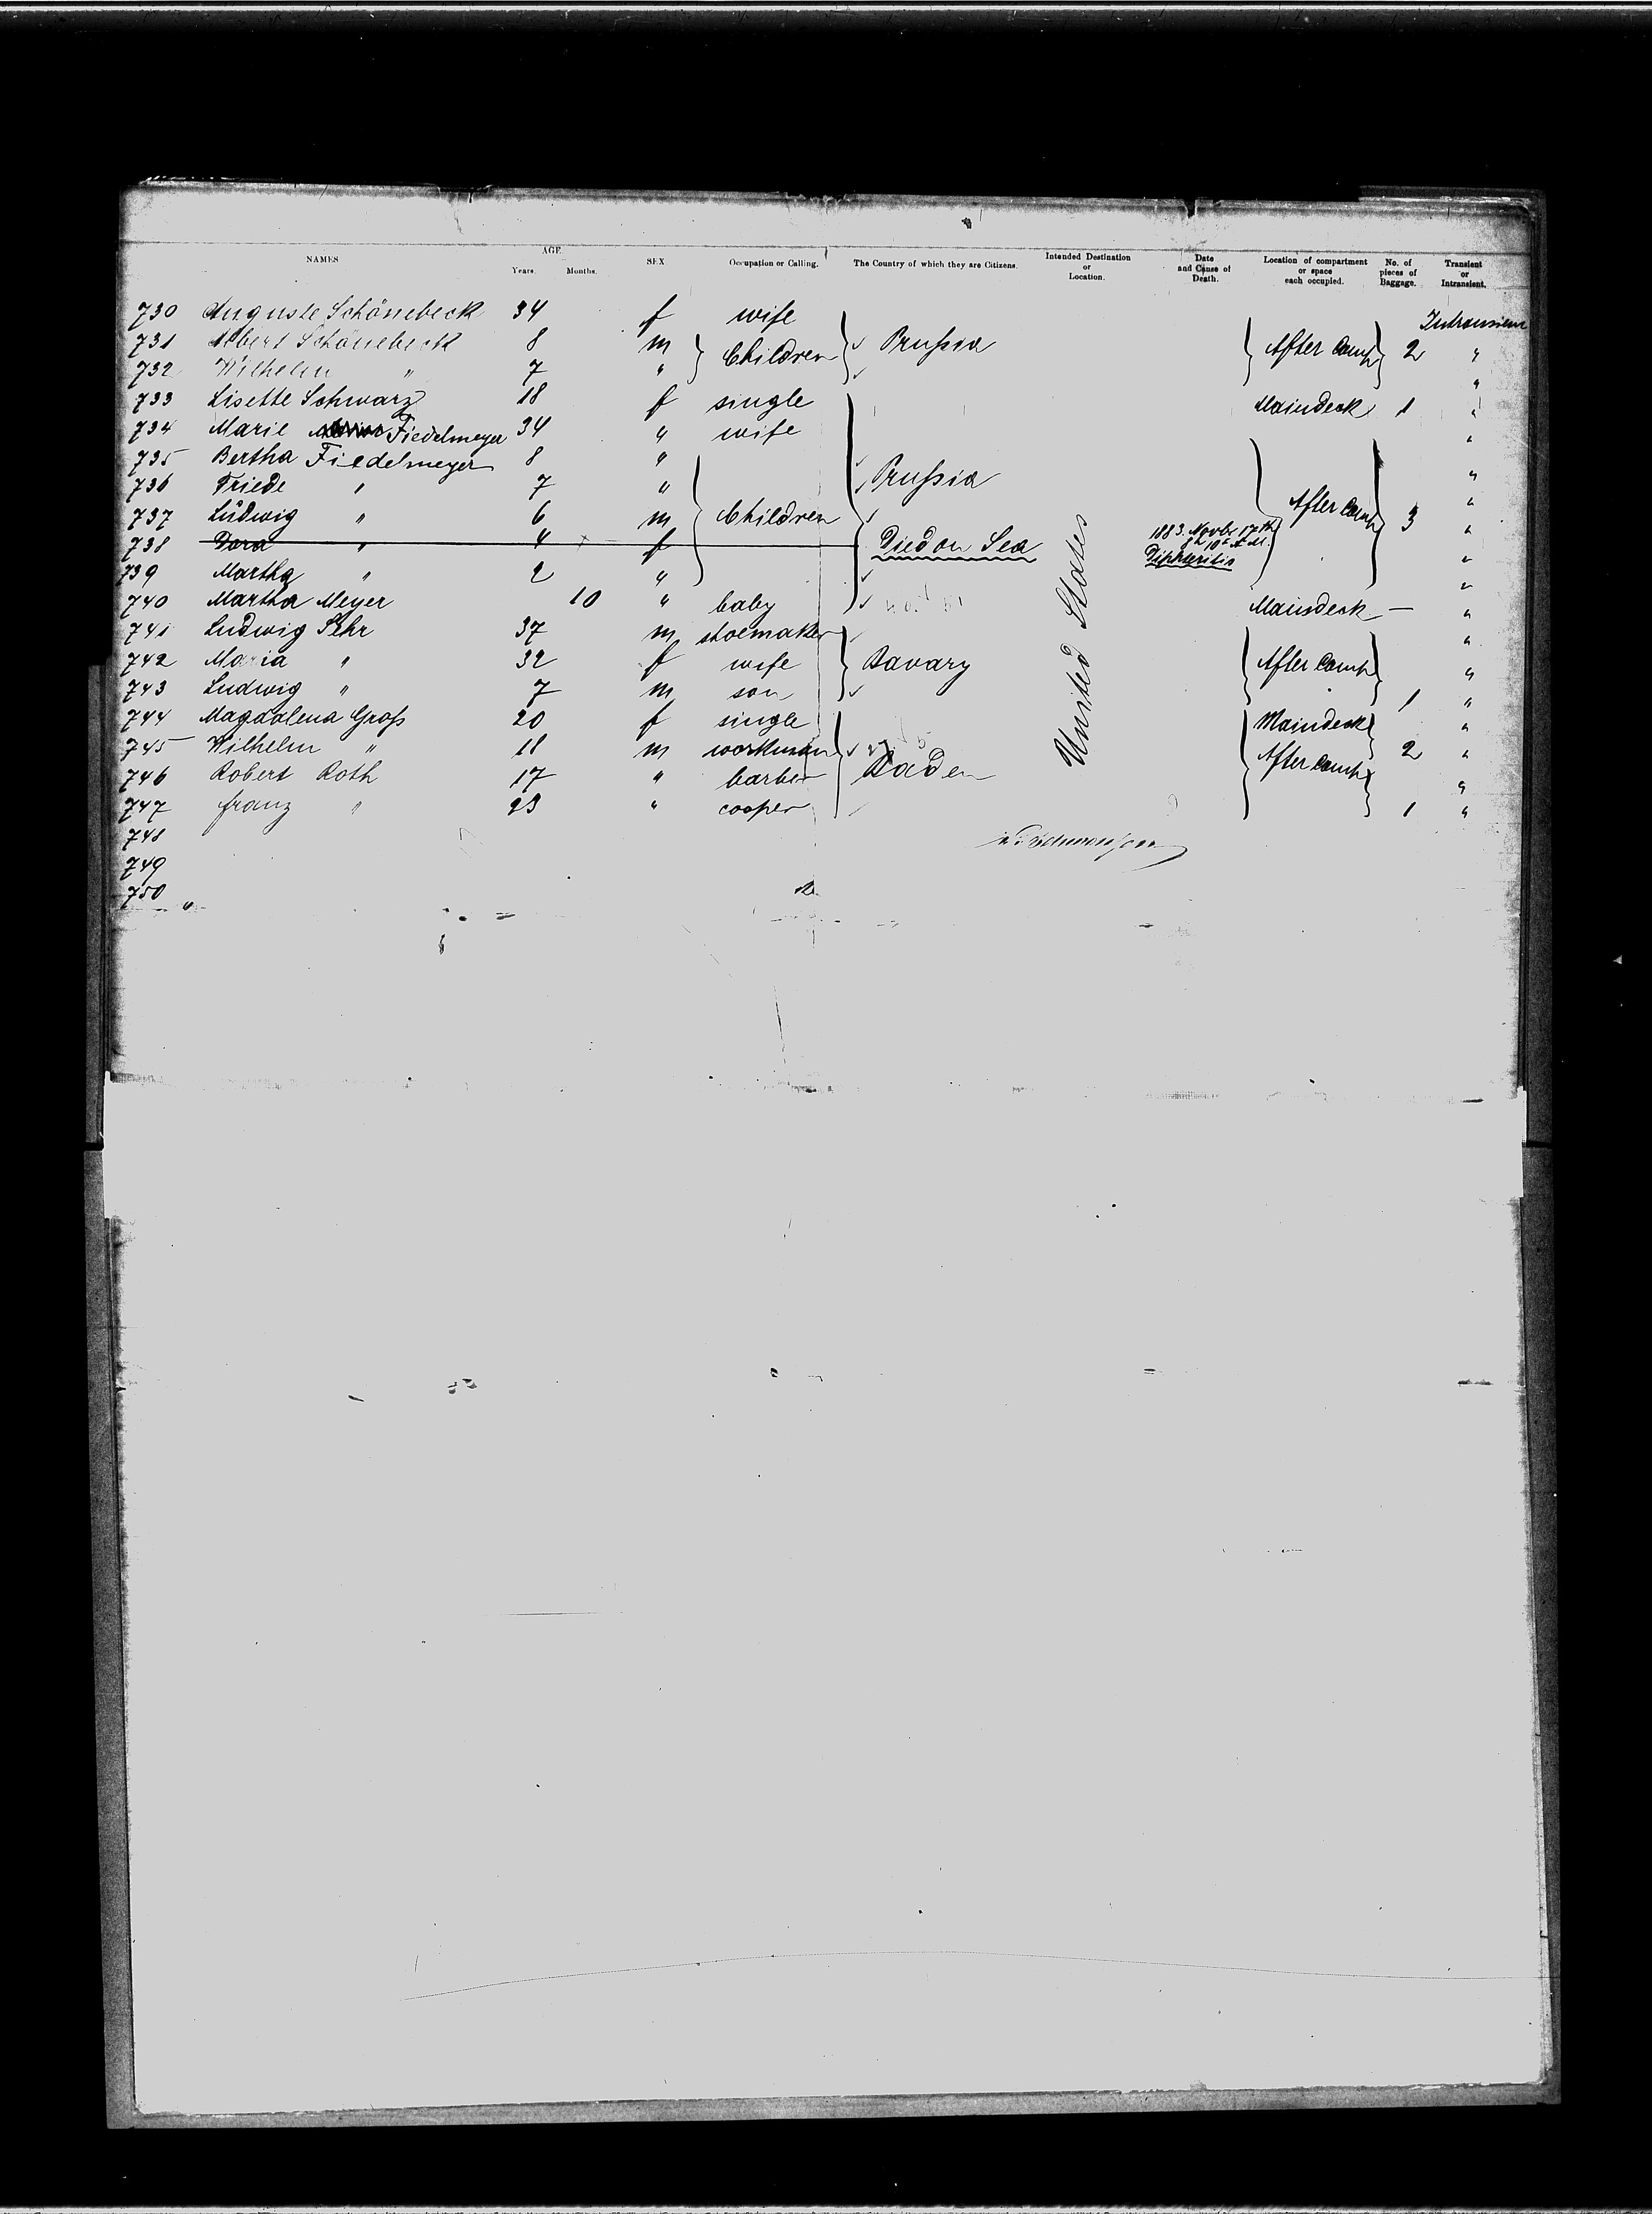 NAMES AGE. Years. Months. SEX Occupation or Calling. The Country of which they are Citizens. Intended Destination or Location. Date and Cause of Death. Location of compartment or space each occupied. No. of pieces of Baggage. Transient or Intransient.
730 Auguste Schönebeck 34 f wife Intransient
731 Albert Schönebeck 8 m Children Prussia After Comp 2 "
732 Wilhelm " 7 " "
733 Lisette Schwarz 18 f single Maindeck 1 "
734 Marie Fiedelmeyer 34 " wife "
735 Bertha Fiedelmeyer 8 " Prussia "
736 Friede " 7 " "
737 Ludwig " 6 m Children After Comp 3 "
738 Dora " 4 f Died on Sea 1883. Novbr 17th 10 A.M. Diphteritis "
739 Martha " 2 " "
740 Martha Meyer 10 " baby Maindeck — "
741 Ludwig Sehr 37 m shoemaker "
742 Maria " 32 f wife Bavary After Comp "
743 Ludwig " 7 m son 1 "
United States
744 Magdalena Groß 20 f single Maindeck "
745 Wilhelm " 18 m workman After Comp 2 "
746 Robert Roth 17 " barber Baden "
747 Franz " 23 " cooper 1 "
748
749
750